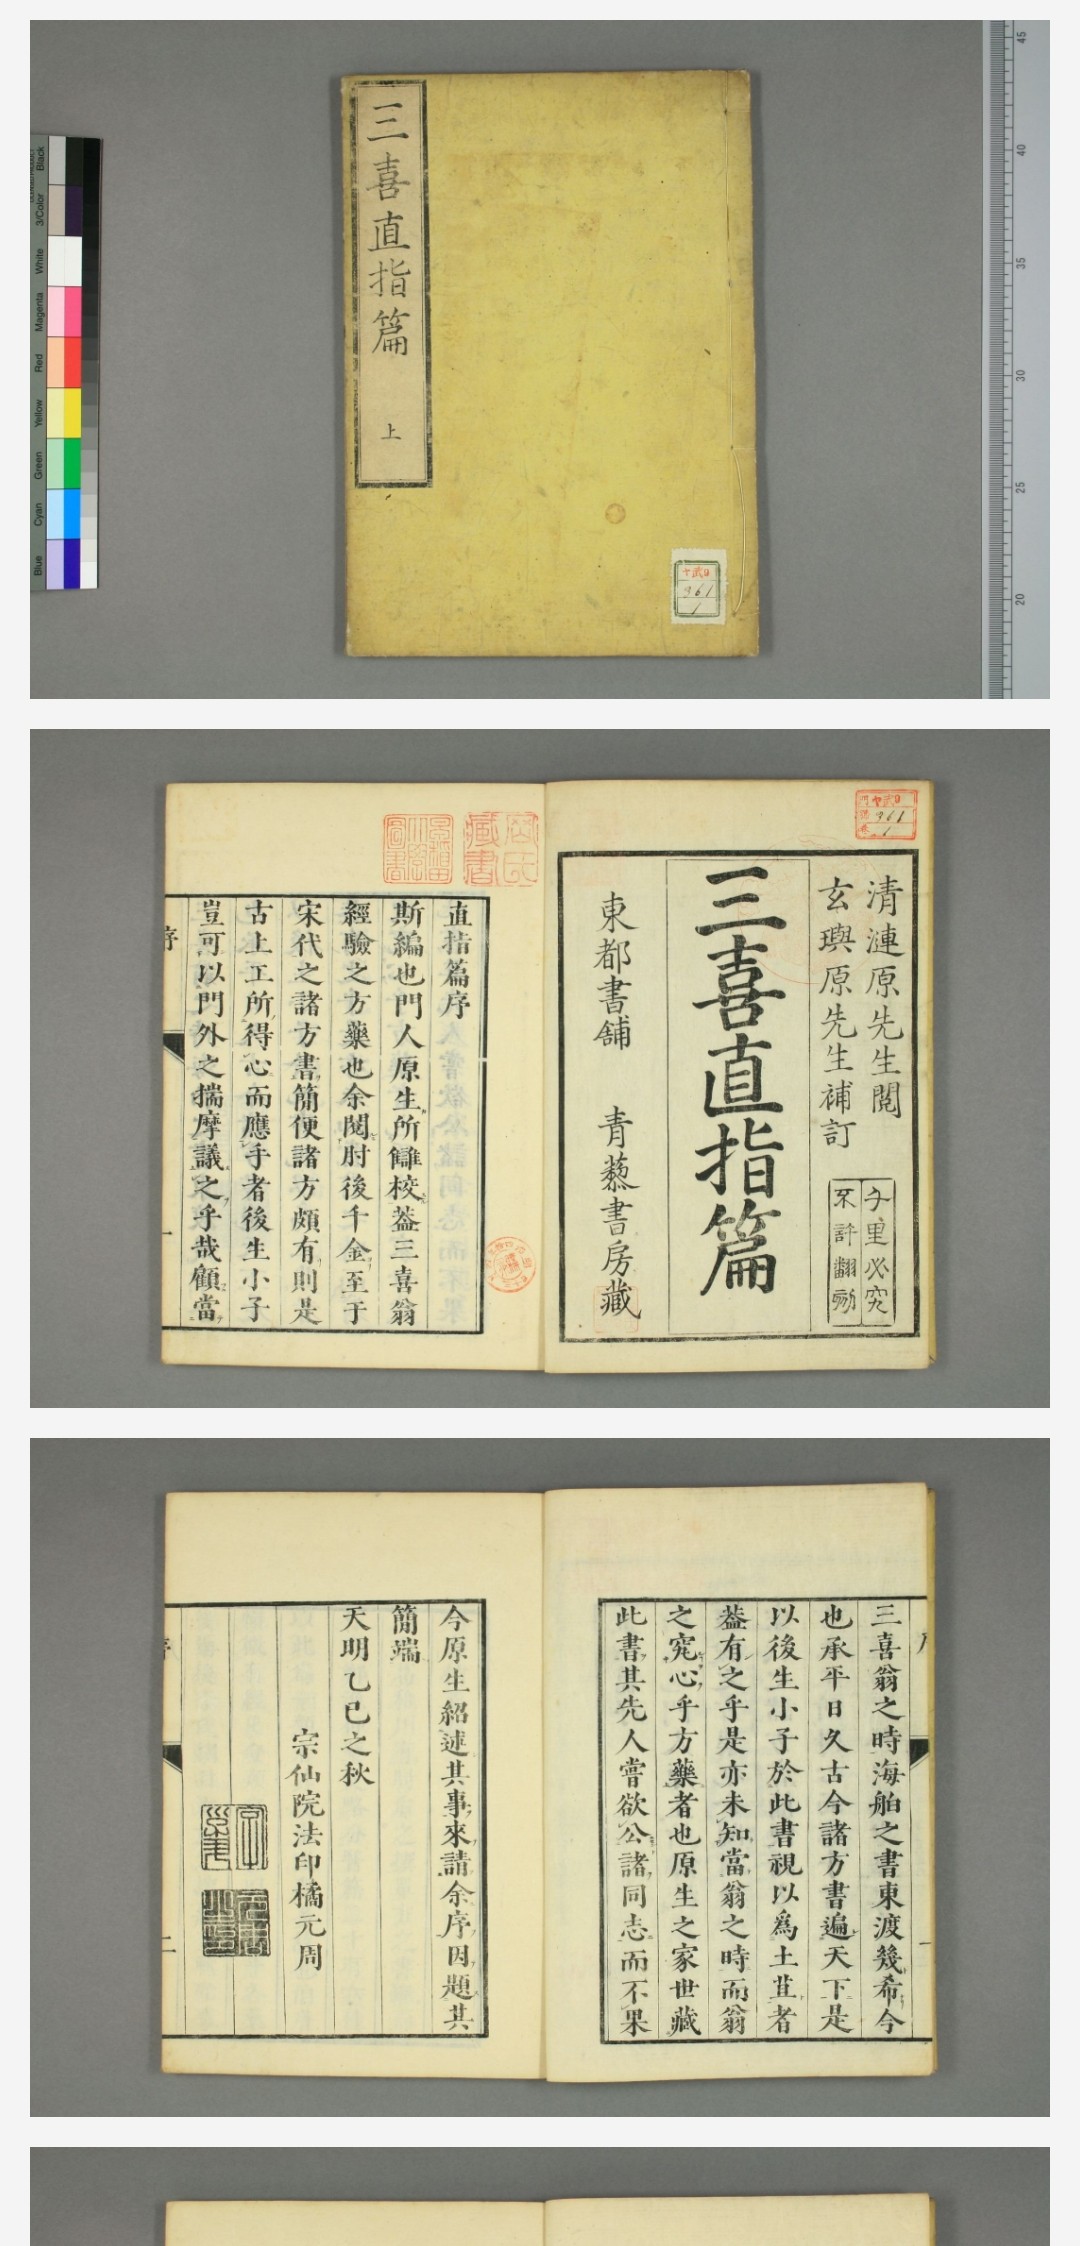 三喜直指篇
上
Black
3/Color
White
Magenta
Red
Yellow
Green
Cyan
Blue
45
40
35
30
25
20
ヤ武9
361
1
ヤ武9
361
1
清漣原先生閲
玄璵原先生補訂
千里必究
不許翻刻
三喜直指篇
東都書舗 青藜書房藏
藏書
直指篇序
斯編也門人原生所讎校葢三喜翁
經驗之方藥也余閲肘後千金至于
宋代之諸方書簡便諸方頗有則是
古上工所得心而應手者後生小子
豈可以門外之揣摩議之乎哉顧當
序
一
三喜翁之時海舶之書東渡幾希今
也承平日久古今諸方書遍天下是
以後生小子於此書視以爲土苴者
葢有之乎是亦未知當翁之時而翁
之究心乎方藥者也原生之家世藏
此書其先人嘗欲公諸同志而不果
今原生紹述其事來請余序因題其
簡端
天明乙巳之秋
宗仙院法印橘元周
二